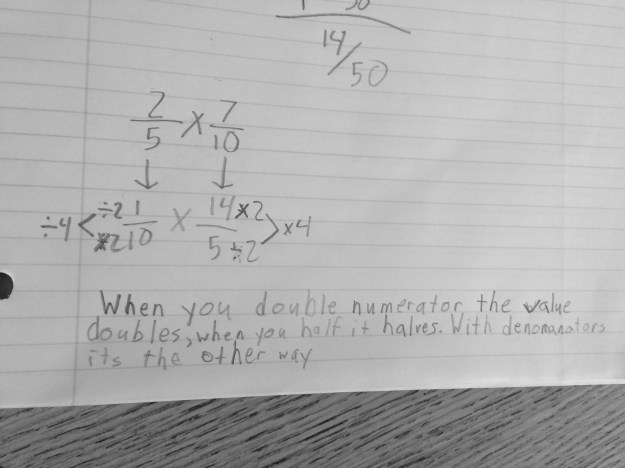 14/50
2/5 x 7/10
÷4 < ÷2 1/10 x 14/5 x2 > x4
x2 ÷2
When you double numerator the value
doubles, when you half it halves. With denomanators
its the other way